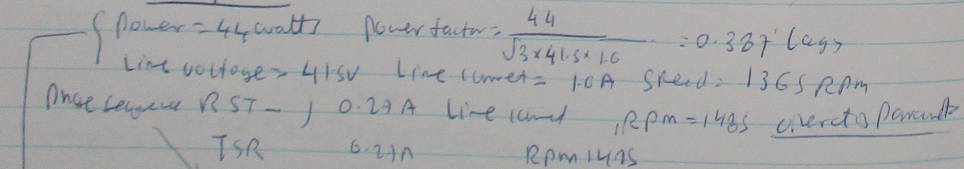 Power = 44 watts Power factor = 44 / √3 × 41.5 × 1.6 = 0.387 lag
Line voltage = 41.5V Line current = 1.6A Speed = 1365 RPM
Phase sequence RST – , 0.27A Line current , RPM = 1485
TSR 0.27A RPM 1495